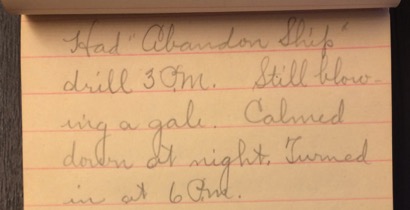 Had "Abandon Ship"
drill 3 P.M. Still blow-
ing a gale. Calmed
down at night. Turned
in at 6 P.m.